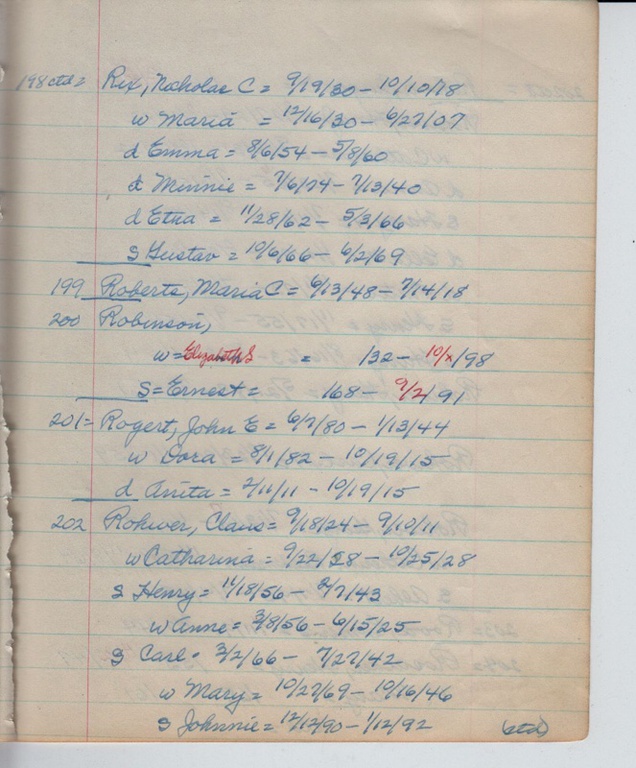 198 ctd = Rix, Nicholas C = 9/19/30 - 10/10/18
w Maria = 12/16/30 - 6/27/07
d Emma = 8/6/54 - 5/8/60
d Minnie = 7/6/74 - 7/13/40
d Etna = 11/28/62 - 5/3/66
s Gustav = 10/6/66 - 6/2/69
199 Roberts, Maria C = 6/13/48 - 7/14/18
200 Robinson,
w = Elizabeth S = /32 - 10/x/98
S = Ernest = 168 - 9/2/91
201 = Rogert, John E = 6/7/80 - 1/13/44
w Dora = 8/1/82 - 10/19/15
d Anita = 2/11/11 - 10/19/15
202 Rohwer, Claus = 9/18/24 - 9/10/11
w Catharina = 9/22/38 - 10/25/28
s Henry = 11/18/56 - 2/7/43
w Anne = 3/8/56 - 6/15/25
s Carl - 3/2/66 - 7/27/42
w Mary = 10/27/69 - 10/16/46
s Johnnie = 12/12/90 - 1/12/92 (ctd)